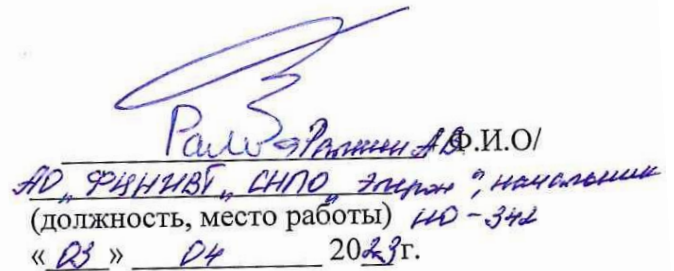 Ф.И.О/
АО „ФЦНИВТ „СНПО „Элерон“, начальник
(должность, место работы) НО-342
«03» 04 2023г.